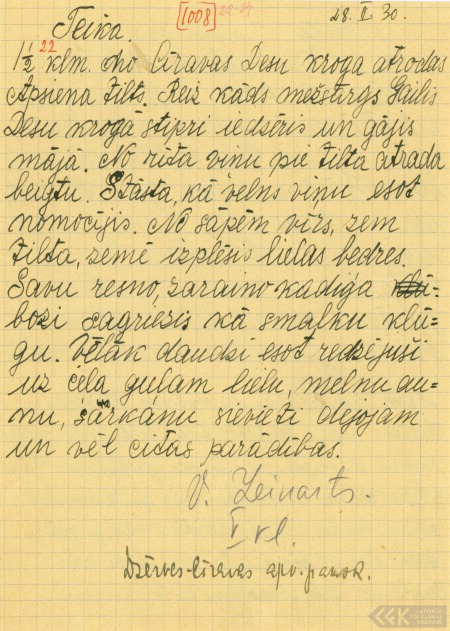 [1008] 22-24
28. II 30.
Teika.
22
1 1/2 klm. no Cīravas Desu kroga atrodas
Apsiena tilts. Reiz kāds mežsargs Gailis
Desu krogā stipri iedzēris un gājis
mājā. No rīta viņu pie tilta atrada
beigtu. Stāsta, kā velns viņu esot
nomocījis. No sāpēm vīrs, zem
tilta, zemē izplēsis lielas bedres.
Savu resno, zaraino kadiģa
bozi sagriezis kā smalku klū=
gu. Vēlāk daudzi esot redzējuši
uz ceļa guļam lielu, melnu au=
nu, sārkanu sievieti dejojam
un vēl citas parādības.
V. Leinarts.
V kl.
Dzērves-Cīravas apv. pamsk.